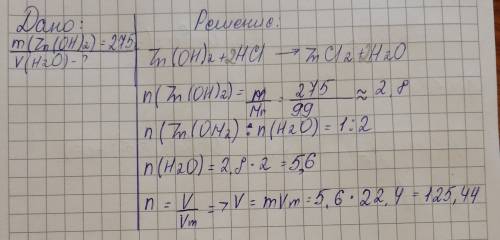 Дано:
m(Zn(OH)2)=275
V(H2O)-?
Решение:
Zn(OH)2+2HCl → ZnCl2+2H2O
n(Zn(OH)2)= m/Mr = 275/99 ≈ 2,8
n(Zn(OH2):n(H2O)=1:2
n(H2O)=2,8·2=5,6
n = V/Vm => V = mVm = 5,6·22,4 = 125,44